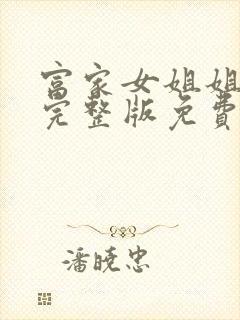 富家女姐姐
完整版免費
潘曉忠